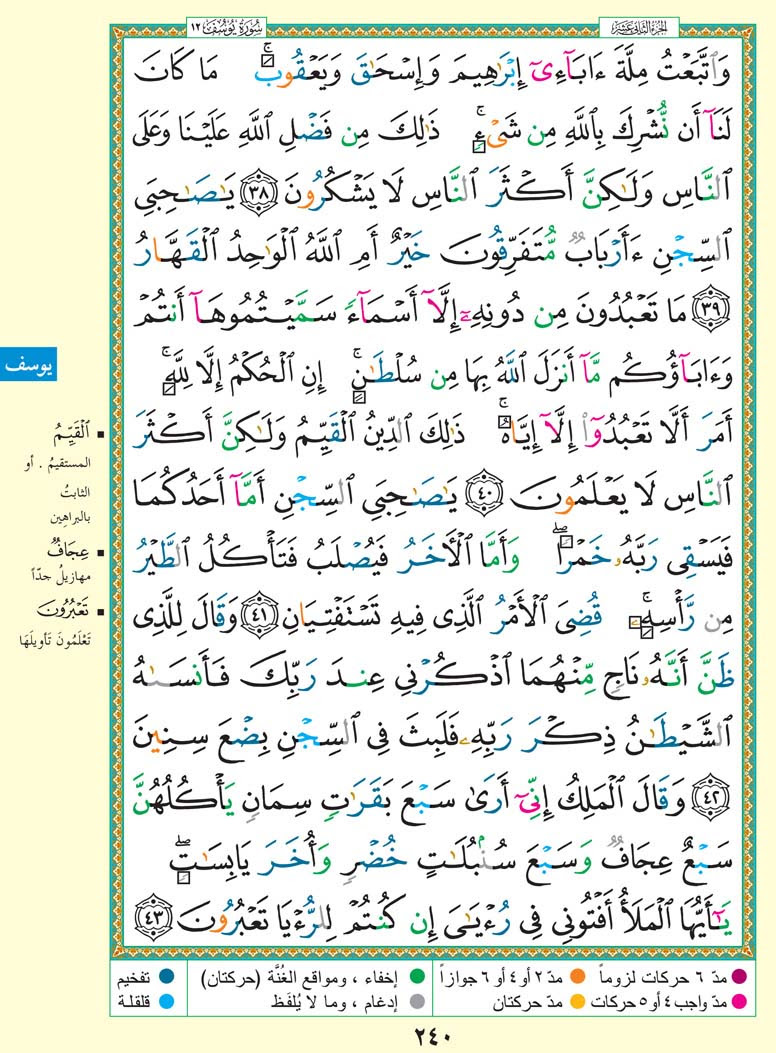 الجزء الثاني عشر
سورة يوسف ١٢
وَٱتَّبَعْتُ مِلَّةَ ءَابَآءِىٓ إِبْرَٰهِيمَ وَإِسْحَٰقَ وَيَعْقُوبَ ۚ مَا كَانَ
لَنَآ أَن نُّشْرِكَ بِٱللَّهِ مِن شَىْءٍ ۚ ذَٰلِكَ مِن فَضْلِ ٱللَّهِ عَلَيْنَا وَعَلَى
ٱلنَّاسِ وَلَٰكِنَّ أَكْثَرَ ٱلنَّاسِ لَا يَشْكُرُونَ ﴿٣٨﴾ يَٰصَٰحِبَىِ
ٱلسِّجْنِ ءَأَرْبَابٌ مُّتَفَرِّقُونَ خَيْرٌ أَمِ ٱللَّهُ ٱلْوَٰحِدُ ٱلْقَهَّارُ
﴿٣٩﴾ مَا تَعْبُدُونَ مِن دُونِهِۦٓ إِلَّآ أَسْمَآءً سَمَّيْتُمُوهَآ أَنتُمْ
وَءَابَآؤُكُم مَّآ أَنزَلَ ٱللَّهُ بِهَا مِن سُلْطَٰنٍ ۚ إِنِ ٱلْحُكْمُ إِلَّا لِلَّهِ ۚ
أَمَرَ أَلَّا تَعْبُدُوٓا۟ إِلَّآ إِيَّاهُ ۚ ذَٰلِكَ ٱلدِّينُ ٱلْقَيِّمُ وَلَٰكِنَّ أَكْثَرَ
ٱلنَّاسِ لَا يَعْلَمُونَ ﴿٤٠﴾ يَٰصَٰحِبَىِ ٱلسِّجْنِ أَمَّآ أَحَدُكُمَا
فَيَسْقِى رَبَّهُۥ خَمْرًا ۖ وَأَمَّا ٱلْءَاخَرُ فَيُصْلَبُ فَتَأْكُلُ ٱلطَّيْرُ
مِن رَّأْسِهِۦ ۚ قُضِىَ ٱلْأَمْرُ ٱلَّذِى فِيهِ تَسْتَفْتِيَانِ ﴿٤١﴾ وَقَالَ لِلَّذِى
ظَنَّ أَنَّهُۥ نَاجٍ مِّنْهُمَا ٱذْكُرْنِى عِندَ رَبِّكَ فَأَنسَىٰهُ
ٱلشَّيْطَٰنُ ذِكْرَ رَبِّهِۦ فَلَبِثَ فِى ٱلسِّجْنِ بِضْعَ سِنِينَ
﴿٤٢﴾ وَقَالَ ٱلْمَلِكُ إِنِّىٓ أَرَىٰ سَبْعَ بَقَرَٰتٍ سِمَانٍ يَأْكُلُهُنَّ
سَبْعٌ عِجَافٌ وَسَبْعَ سُنۢبُلَٰتٍ خُضْرٍ وَأُخَرَ يَابِسَٰتٍ ۖ
يَٰٓأَيُّهَا ٱلْمَلَأُ أَفْتُونِى فِى رُءْيَٰىَ إِن كُنتُمْ لِلرُّءْيَا تَعْبُرُونَ ﴿٤٣﴾
يوسف
▪ ٱلْقَيِّمُ
المستقيمُ . أو
الثابتُ
بالبراهين
▪ عِجَافٌ
مهازيلُ جدّاً
▪ تَعْبُرُونَ
تَعْلَمُونَ تَأويلَهَا
● مدّ ٦ حركات لزوماً ● مدّ ٢ أو ٤ أو ٦ جوازاً
● مدّ واجب ٤ أو ٥ حركات ● مدّ حركتان
● إخفاء ، ومواقع الغُنَّة (حركتان)
● إدغام ، وما لا يُلفَظ
● تفخيم
● قلقلة
٢٤٠